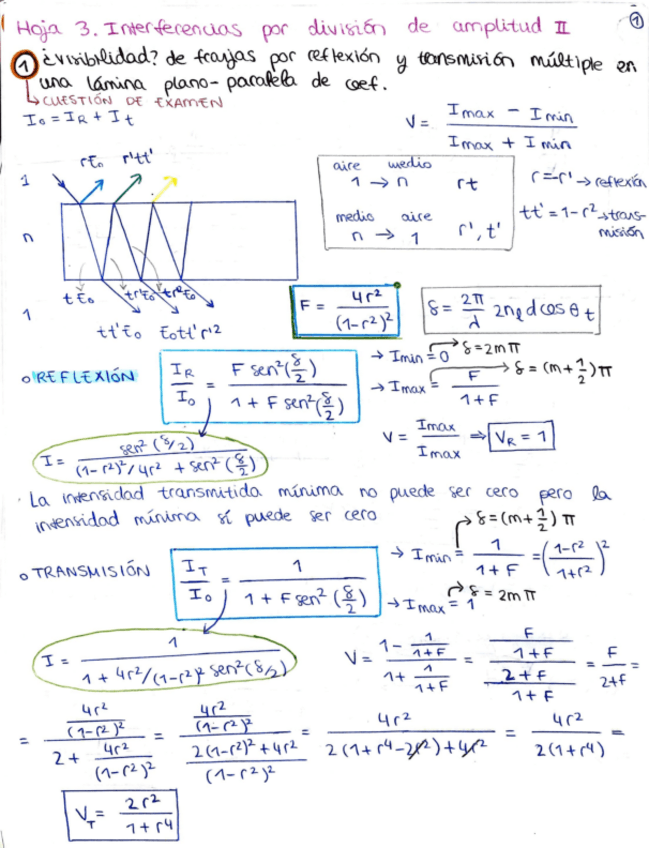 Hoja 3. Interferencias por división de amplitud II
①
① ¿visibilidad? de franjas por reflexión y transmisión múltiple en
una lámina plano-paralela de coef.
↳ CUESTIÓN DE EXAMEN
I₀ = I_R + I_t
V = (Imax - Imin) / (Imax + Imin)
rE₀ r'tt'
1
n
1
tE₀ tr'E₀ tr'²E₀
tt'E₀ E₀tt'r'²
aire medio
1 → n rt
medio aire
n → 1 r', t'
r = -r' → reflexión
tt' = 1 - r² → trans-
misión
F = 4r² / (1-r²)²
δ = (2π/λ) 2nₗ d cos θt
o REFLEXIÓN
I_R / I₀ = F sen²(δ/2) / (1 + F sen²(δ/2))
→ Imin = 0 → δ = 2mπ
→ Imax = F / (1+F) → δ = (m + 1/2)π
V = Imax / Imax ⇒ V_R = 1
I = sen²(δ/2) / ((1-r²)²/4r² + sen²(δ/2))
· La intensidad transmitida mínima no puede ser cero pero la
intensidad mínima sí puede ser cero
o TRANSMISIÓN
I_T / I₀ = 1 / (1 + F sen²(δ/2))
→ Imin = 1 / (1+F) = ((1-r²) / (1+r²))² → δ = (m + 1/2)π
→ Imax = 1 → δ = 2mπ
I = 1 / (1 + 4r²/(1-r²)² sen²(δ/2))
V = (1 - 1/(1+F)) / (1 + 1/(1+F)) = (F/(1+F)) / ((2+F)/(1+F)) = F / (2+F) =
= (4r²/(1-r²)²) / (2 + 4r²/(1-r²)²) = (4r²/(1-r²)²) / ((2(1-r²)² + 4r²)/(1-r²)²) = 4r² / (2(1+r⁴-2r²)+4r²) = 4r² / (2(1+r⁴)) =
V_T = 2r² / (1+r⁴)